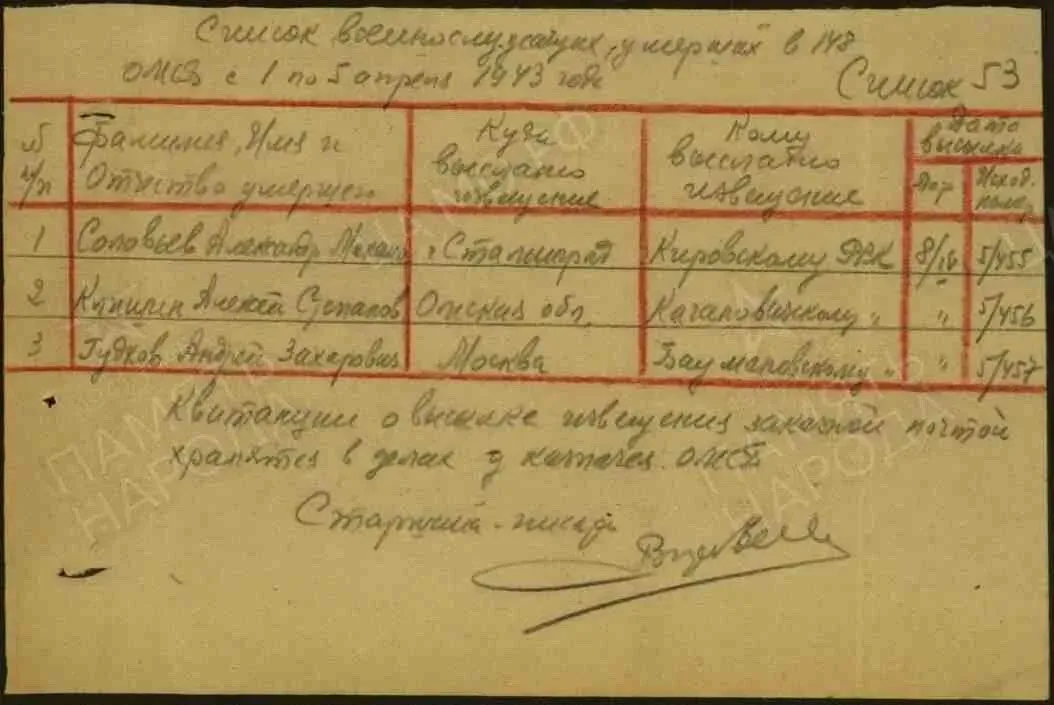 Список военнослужащих, умерших в 148
ОМСБ с 1 по 5 апреля 1943 года
Список 53
N п/п
Фамилия, Имя и Отчество умершего
Куда выслано извещение
Кому выслано извещение
Дата высылки
Исход. номер
1 Соловьев Александр Михайл г. Сталинград Кировскому РВК 8/IV 5/455
2 Алексей Степанов Омская обл. Кагановичскому " " 5/456
3 Гудков Андрей Захарович Москва Бауманскому " " 5/457
Квитанции о высылке извещения заказной почтой
хранятся в делах у казначея ОМСБ
Старший писарь
ПАМЯТЬ
НАРОДА
ПАМЯТЬ
НАРОДА